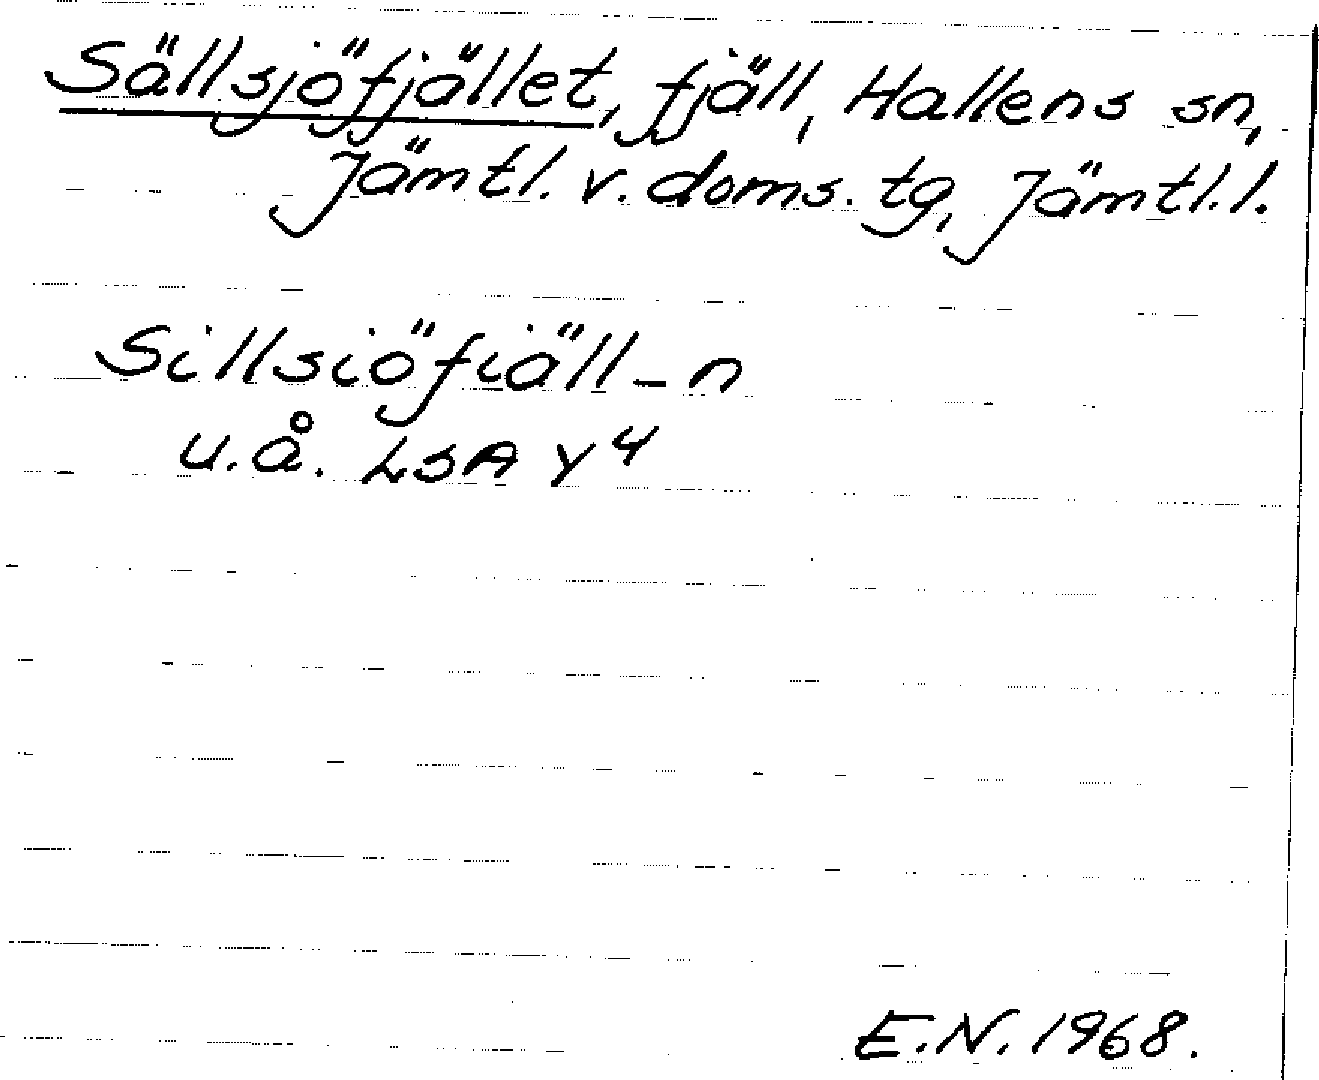 Sällsjöfjället, fjäll, Hallens sn,
Jämtl. v. doms. tg, Jämtl. l.
Sillsiöfiäll-n
u.å. LSA Y4
E.N. 1968.